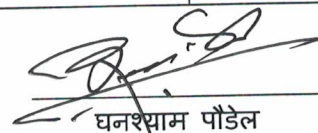 घनश्याम पौडेल